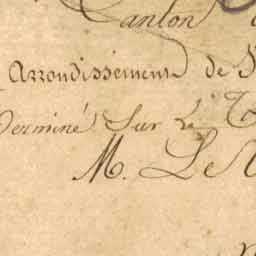 Canton
Arrondissement de
Terminé Sur le
M. Le